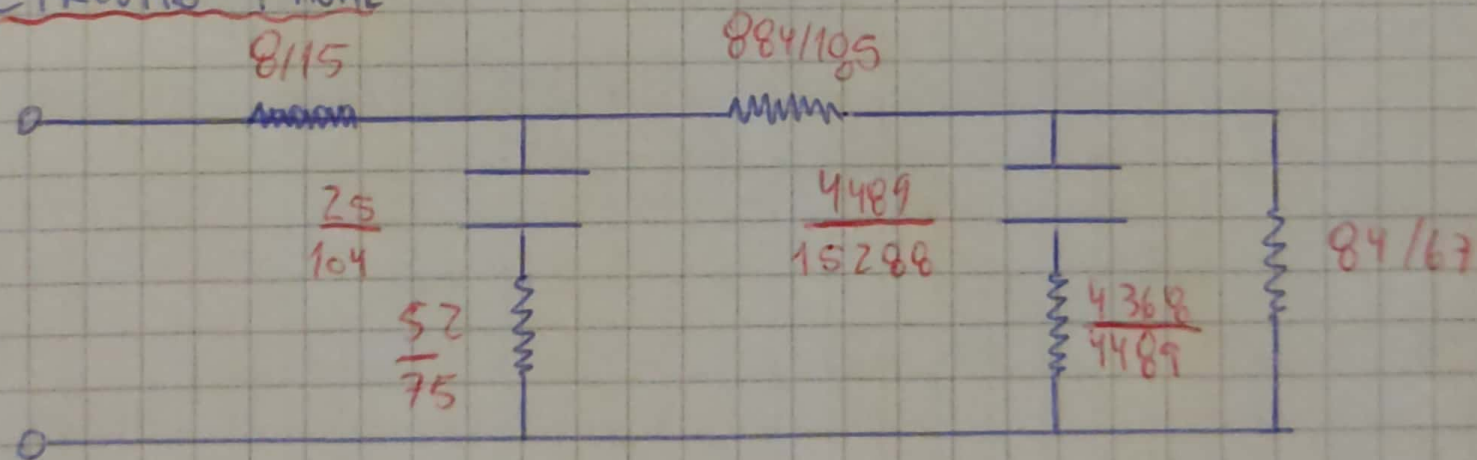 8/15
884/105
25
104
52
75
4489
15288
4368
4489
84/67